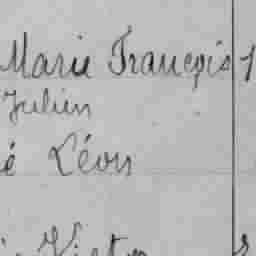 Marie François 1
Julien
é Léon
Victor